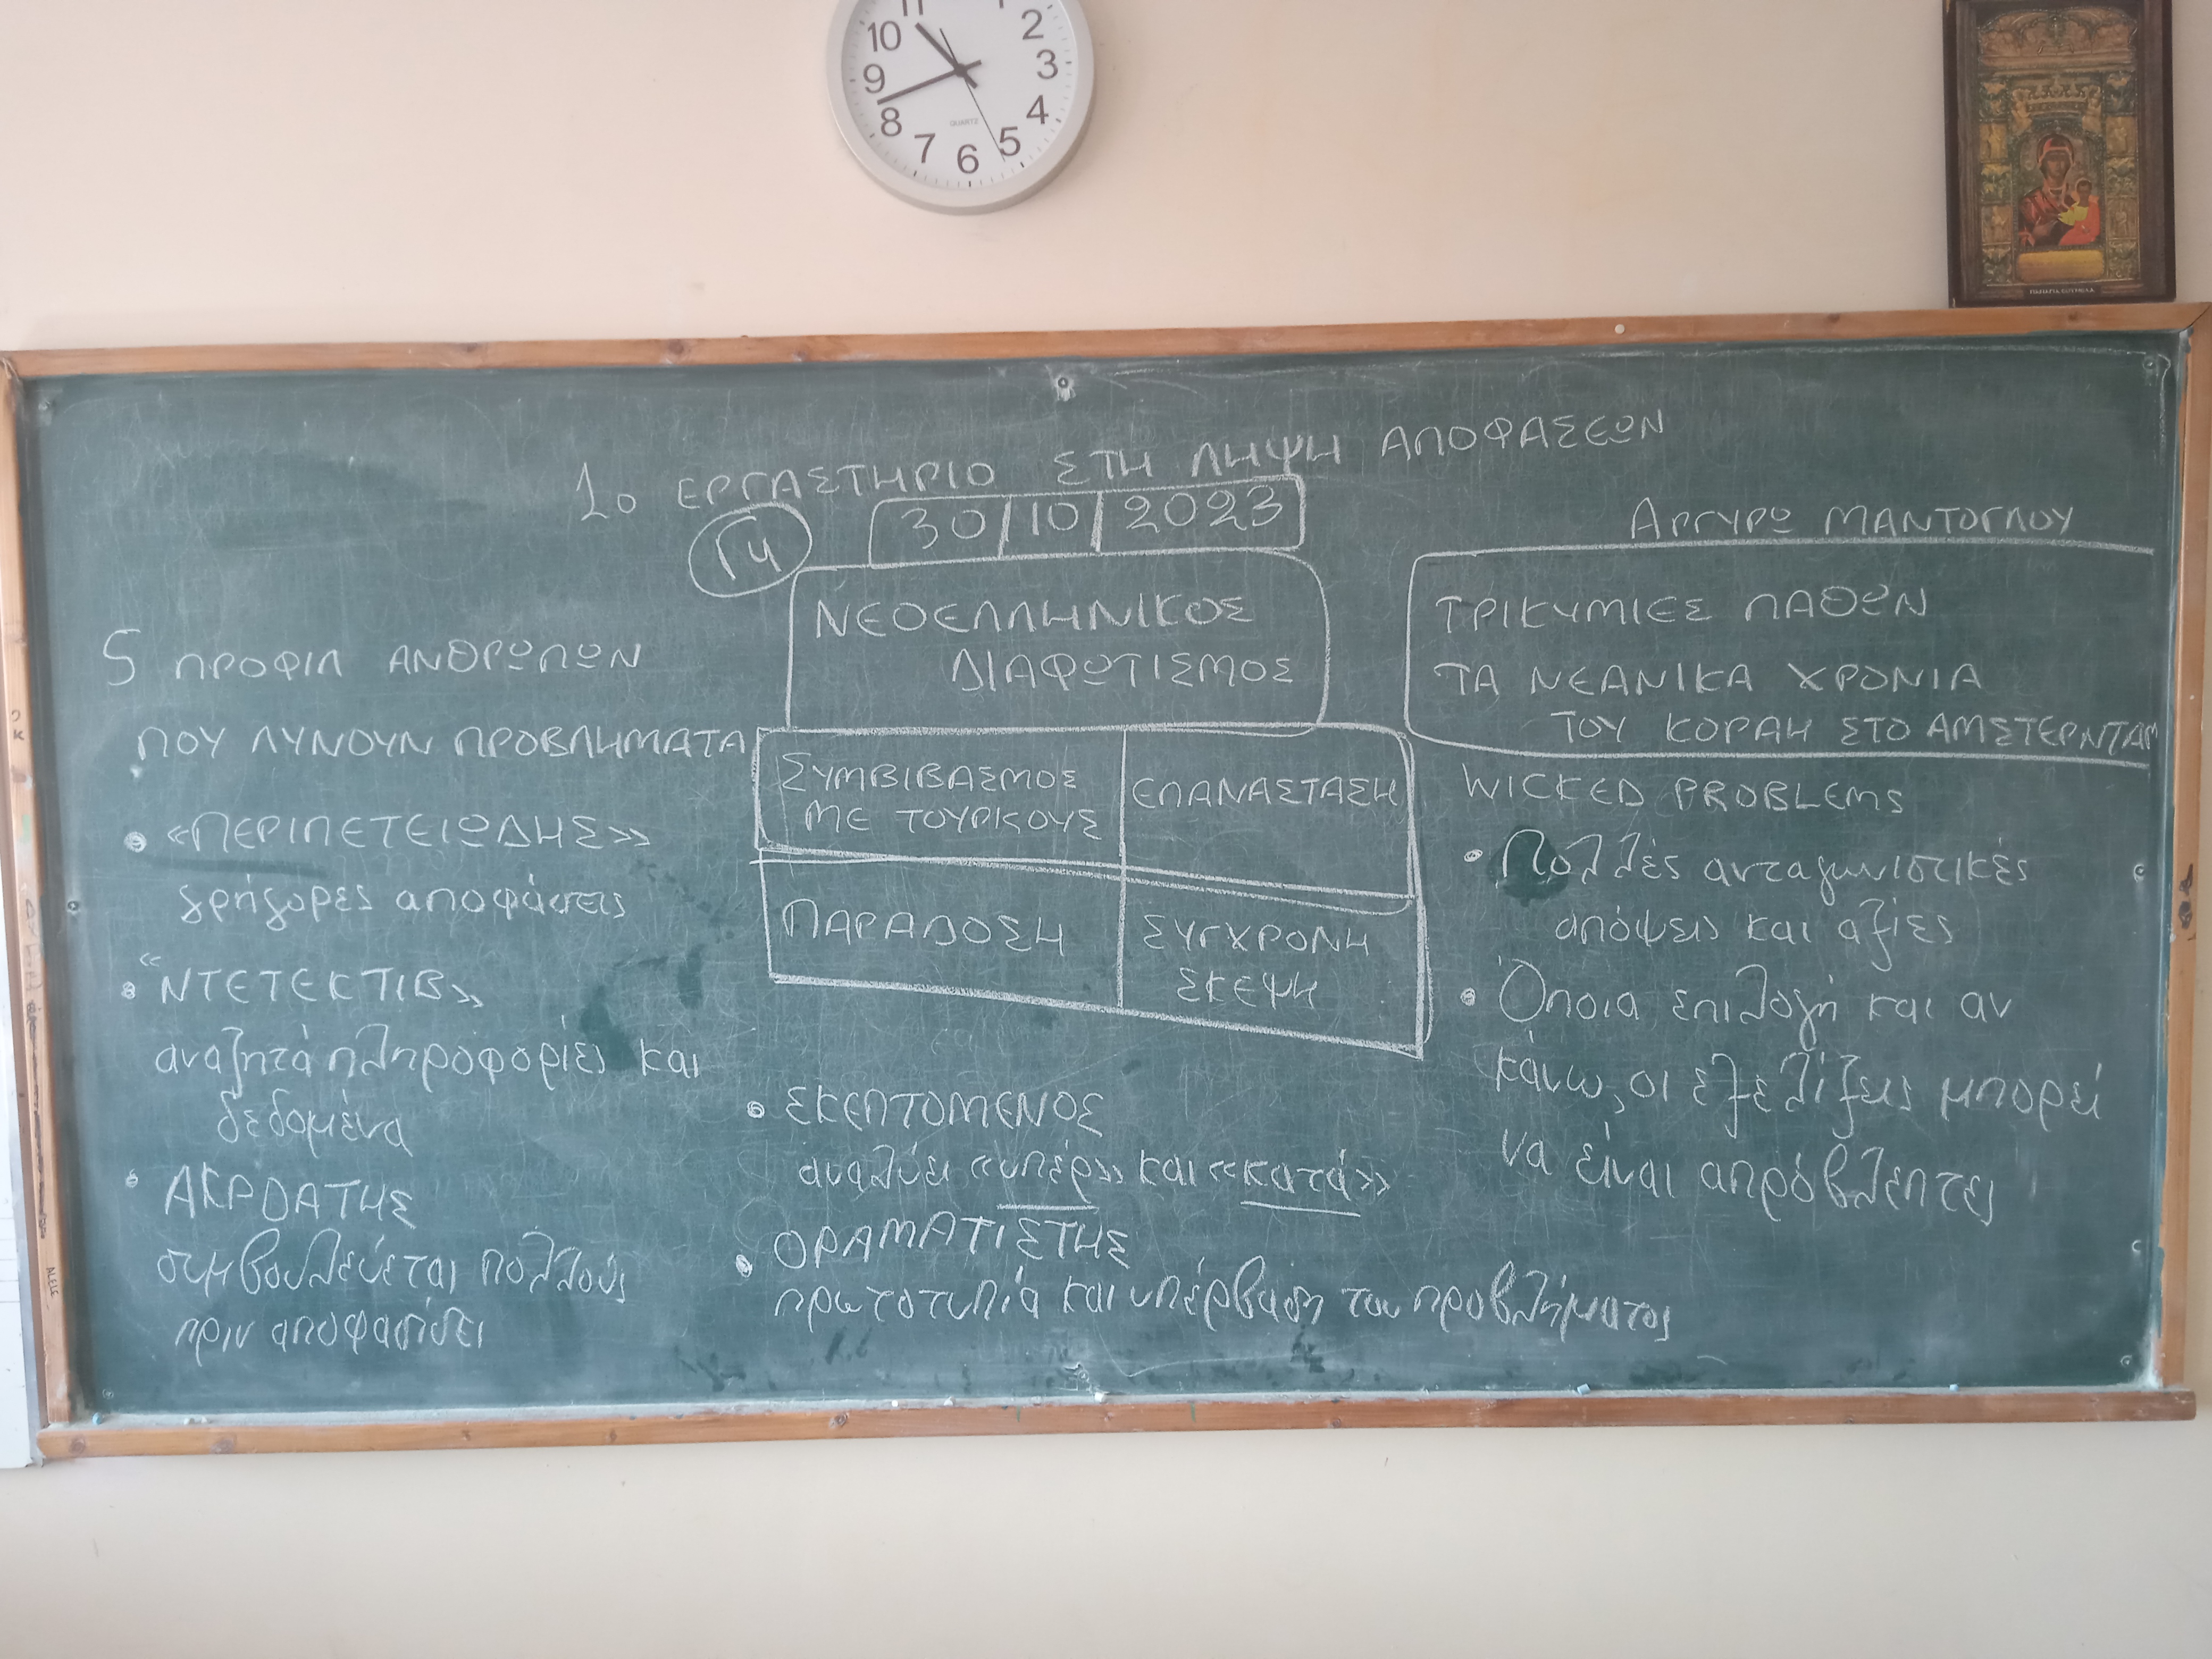 11
1
10
2
9
3
8
4
7
5
6
QUARTZ
ΠΑΝΑΓΙΑ ΣΟΥΜΕΛΑ
1ο ΕΡΓΑΣΤΗΡΙΟ ΣΤΗ ΛΗΨΗ ΑΠΟΦΑΣΕΩΝ
Γ4
30/10/2023
ΝΕΟΕΛΛΗΝΙΚΟΣ
ΔΙΑΦΩΤΙΣΜΟΣ
5 ΠΡΟΦΙΛ ΑΝΘΡΩΠΩΝ
ΠΟΥ ΛΥΝΟΥΝ ΠΡΟΒΛΗΜΑΤΑ
• «ΠΕΡΙΠΕΤΕΙΩΔΗΣ»
γρήγορες αποφάσεις
• «ΝΤΕΤΕΚΤΙΒ»
αναζητά πληροφορίες και
δεδομένα
• ΑΚΡΟΑΤΗΣ
συμβουλεύεται πολλούς
πριν αποφασίσει
ΣΥΜΒΙΒΑΣΜΟΣ
ΜΕ ΤΟΥΡΚΟΥΣ
ΕΠΑΝΑΣΤΑΣΗ
ΠΑΡΑΔΟΣΗ
ΣΥΓΧΡΟΝΗ
ΣΚΕΨΗ
• ΣΚΕΠΤΟΜΕΝΟΣ
αναλύει «υπέρ» και «κατά»
• ΟΡΑΜΑΤΙΣΤΗΣ
πρωτοτυπία και υπέρβαση του προβλήματος
ΑΡΓΥΡΩ ΜΑΝΤΟΓΛΟΥ
ΤΡΙΚΥΜΙΕΣ ΠΑΘΩΝ
ΤΑ ΝΕΑΝΙΚΑ ΧΡΟΝΙΑ
ΤΟΥ ΚΟΡΑΗ ΣΤΟ ΑΜΣΤΕΡΝΤΑΜ
WICKED PROBLEMS
• Πολλές ανταγωνιστικές
απόψεις και αξίες
• Όποια επιλογή και αν
κάνω, οι εξελίξεις μπορεί
να είναι απρόβλεπτες